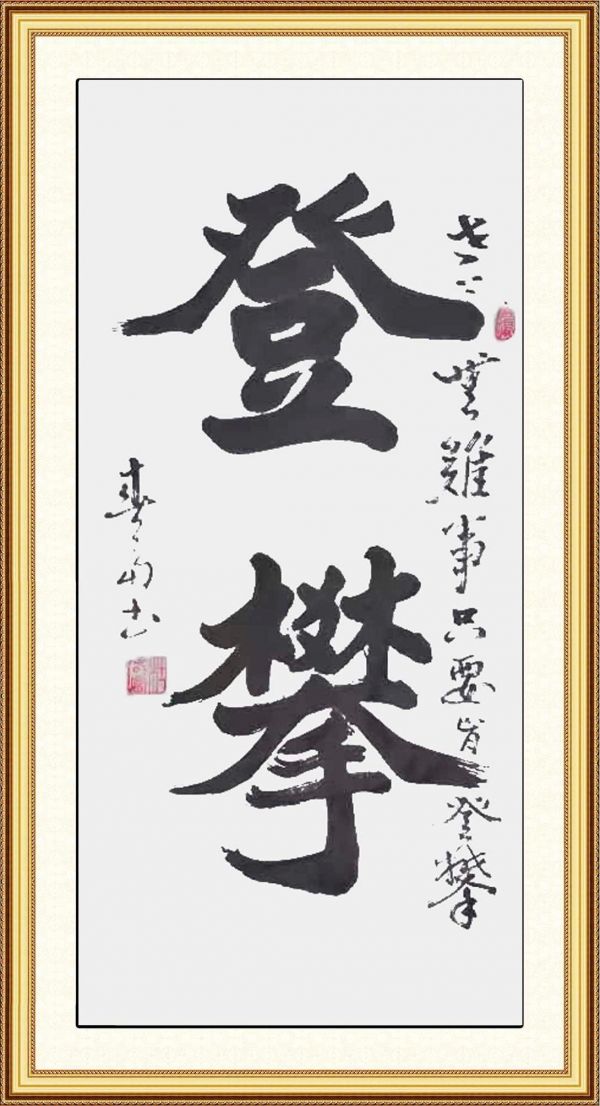 世上無難事只要肯登攀
登攀